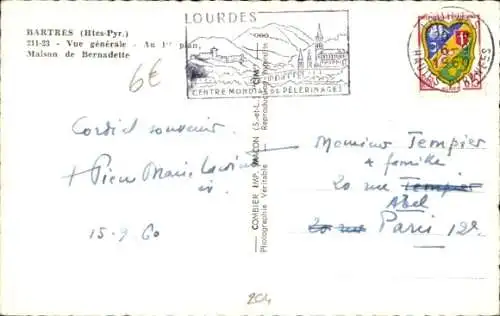 BARTRÈS (Htes-Pyr.)
211-23 - Vue générale - Au 1er plan,
Maison de Bernadette
6€
LOURDES
CENTRE MONDIAL DE PÈLERINAGES
Cordial souvenir
+ Pierre Marie
15.9 60
COMBIER IMP. MACON (S.-et-L.)
Photographie Véritable
Reproduction Interdite
Monsieur Tempier
+ famille
20 rue Tempier
Abel
20 rue Paris 12e
204